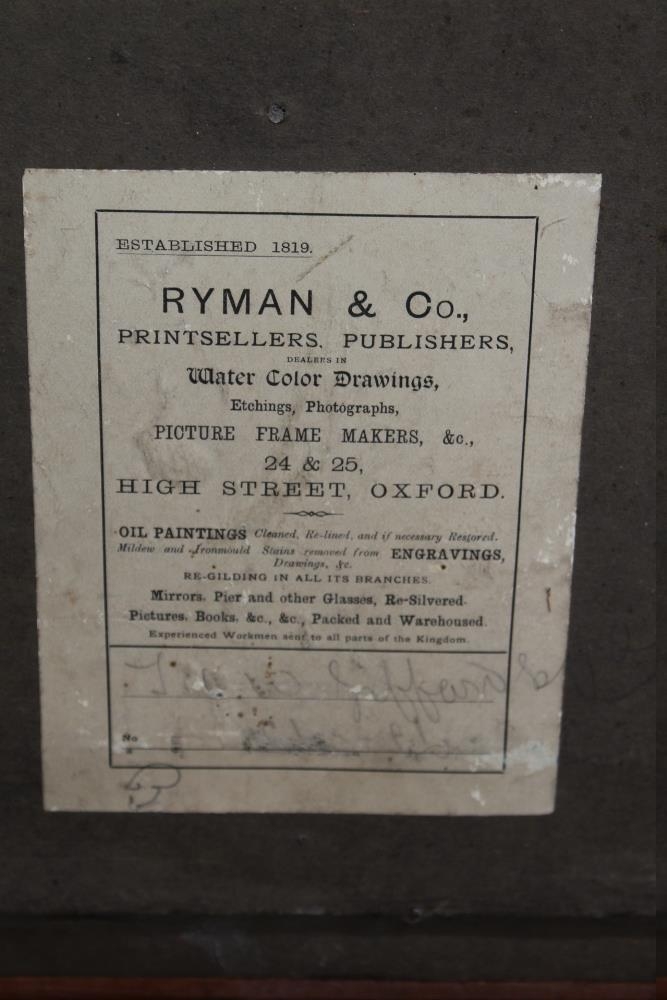 ESTABLISHED 1819.
RYMAN & Co.,
PRINTSELLERS, PUBLISHERS,
DEALERS IN
Water Color Drawings,
Etchings, Photographs,
PICTURE FRAME MAKERS, &c.,
24 & 25,
HIGH STREET, OXFORD.
OIL PAINTINGS Cleaned, Re-lined, and if necessary Restored.
Mildew and Ironmould Stains removed from ENGRAVINGS,
Drawings, &c.
RE-GILDING IN ALL ITS BRANCHES.
Mirrors, Pier and other Glasses, Re-Silvered.
Pictures, Books, &c., &c., Packed and Warehoused.
Experienced Workmen sent to all parts of the Kingdom.
No